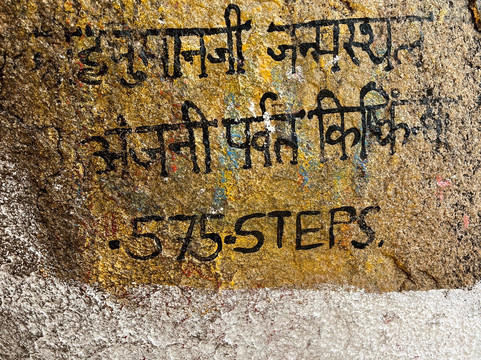 हनुमानजी जन्मस्थल
अंजनी पर्वत किष्किन्धा
.575.STEPS.